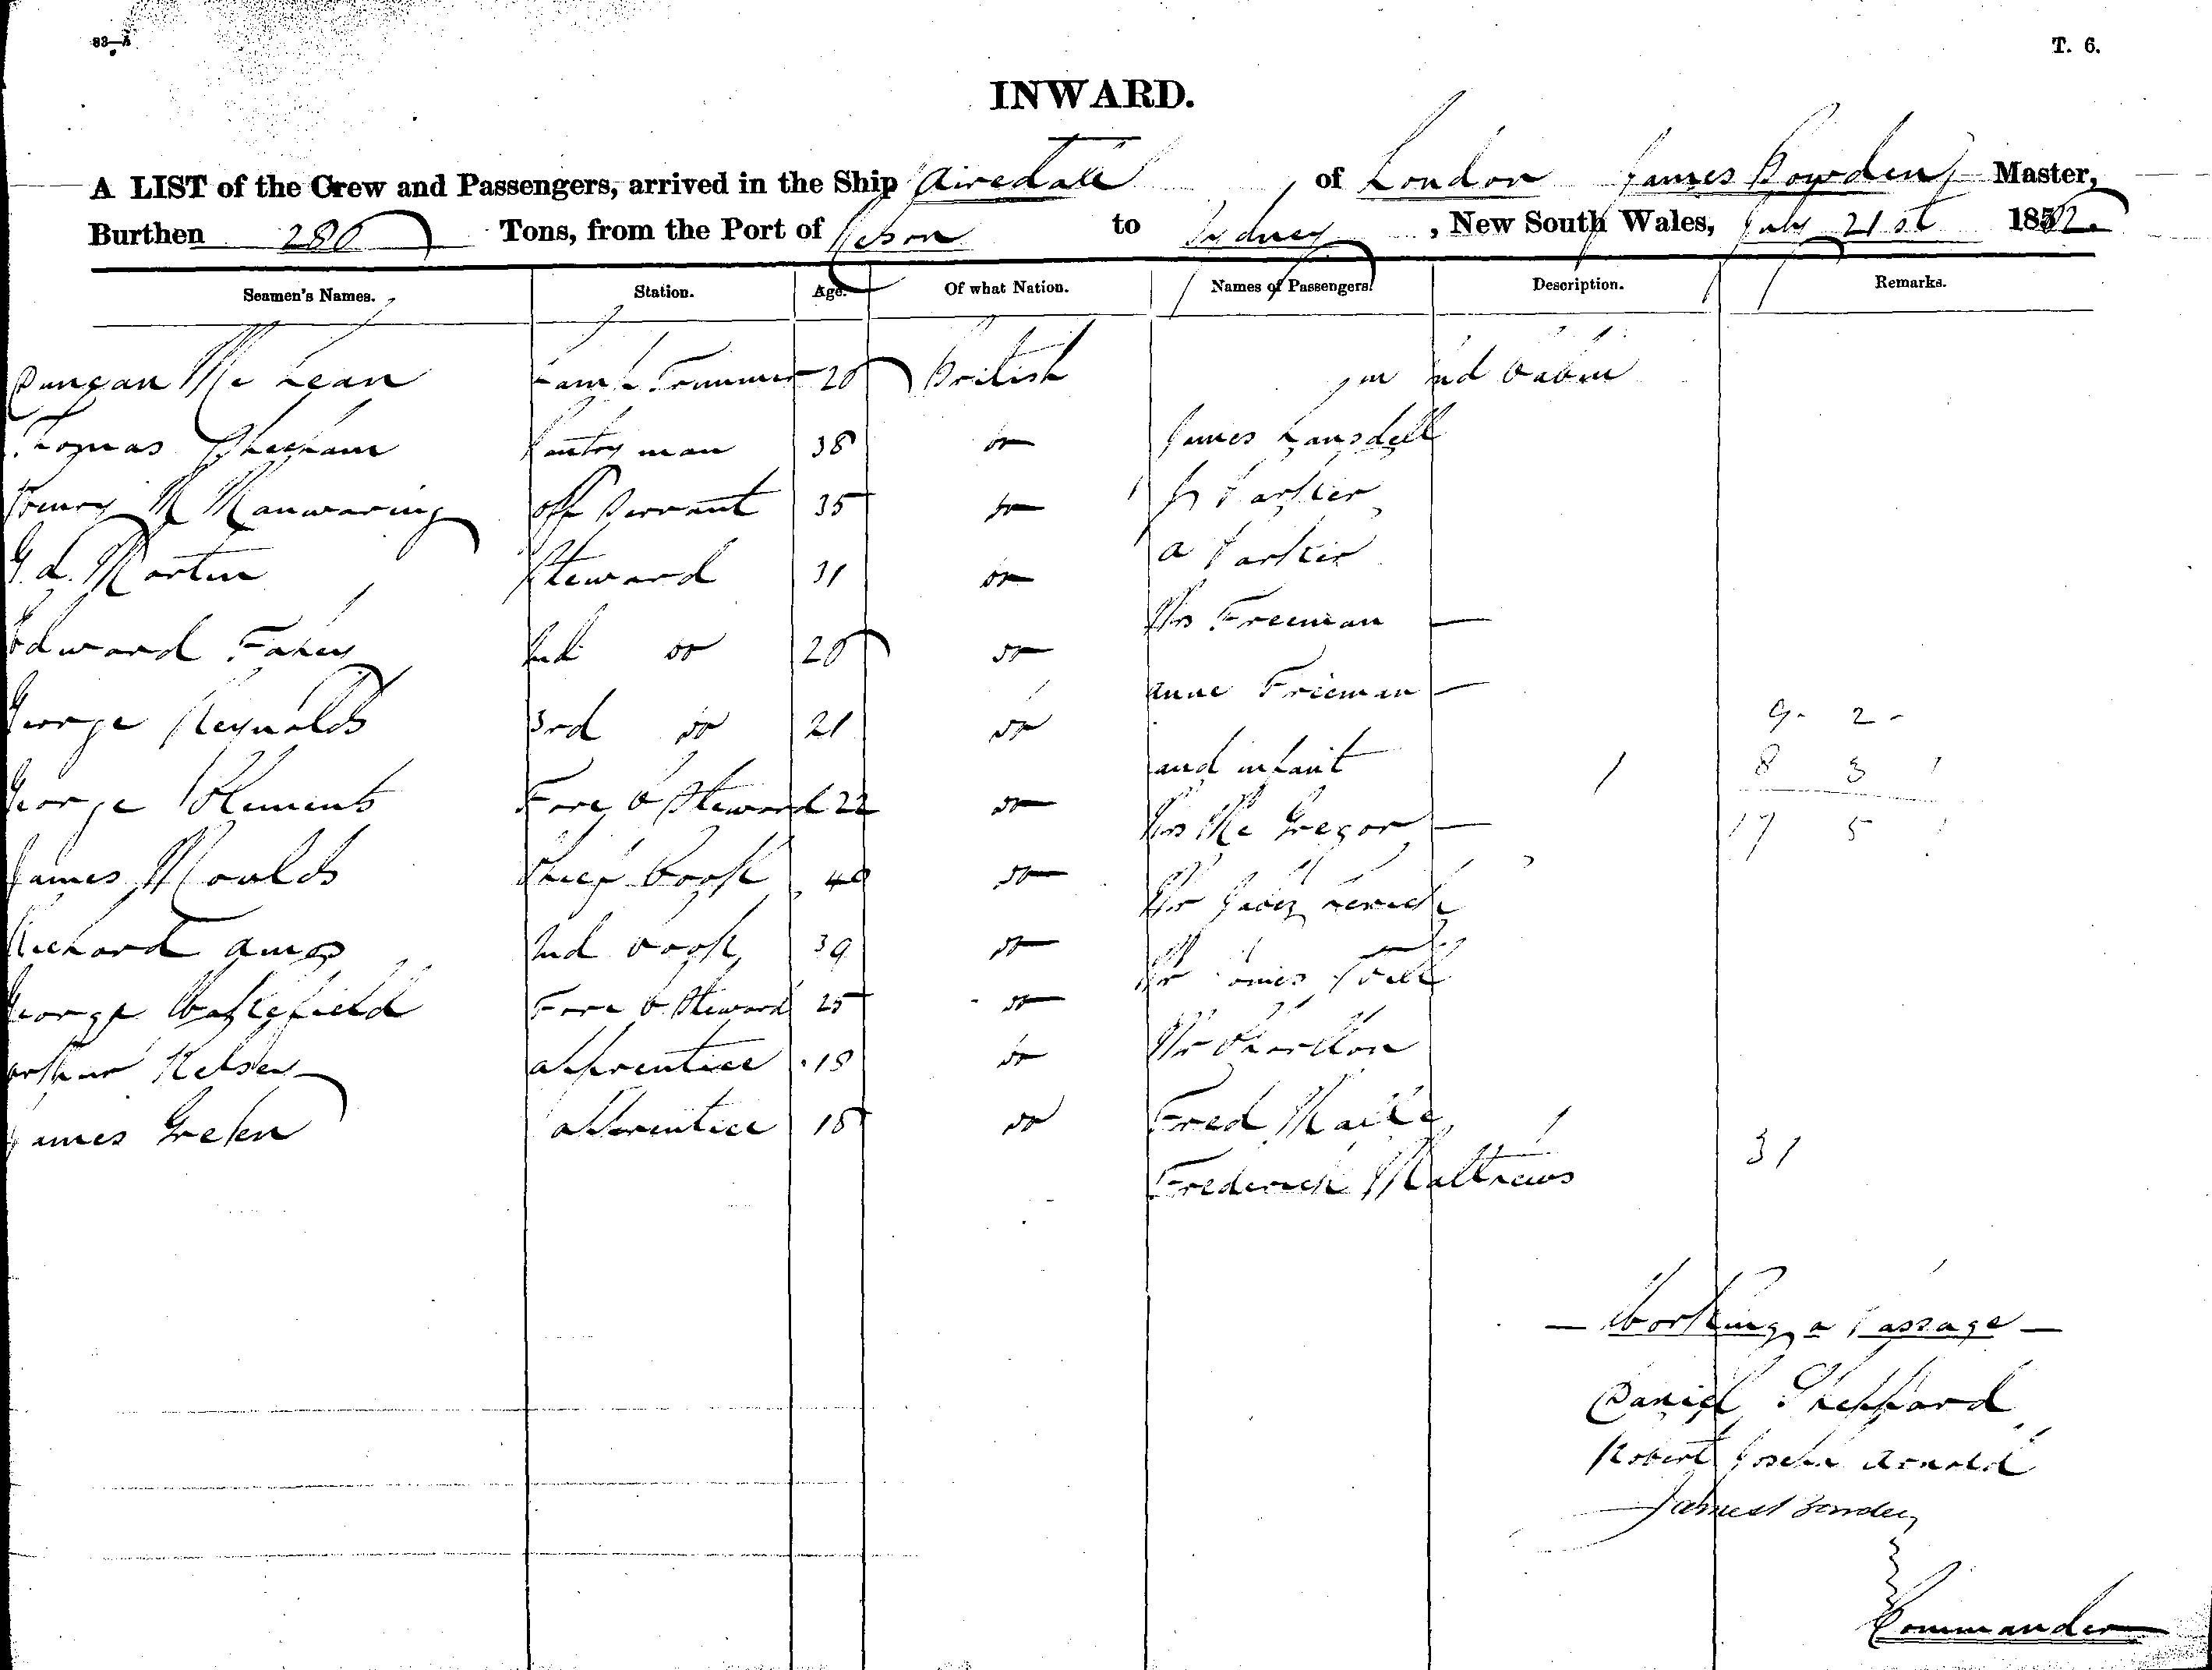 83—A
T. 6.
INWARD.
A LIST of the Crew and Passengers, arrived in the Ship Airedale, of London James Bowden, Master,
Burthen 286 Tons, from the Port of Nelson to Sydney, New South Wales, July 21st 1862.
Seamen's Names. Station. Age. Of what Nation. Names of Passengers. Description. Remarks.
Duncan McLean Lamp Trimmer 20 British 2nd Cabin
Thomas Pantry man 38 Do James Lansdell
Henry M Manwaring Off Servant 35 Do Parker
G. L. Martin Steward 31 Do A Parker
Edward Fahey 2nd Do 20 Do Mrs Freeman —
George Reynolds 3rd Do 21 Do Anne Freeman — 9 - 2 -
George Clements Fore C Steward 22 Do and infant 1 8 3 1
James Moulds Chief Cook 40 Do Mrs McGregor — 17 5 1
Richard Amos 2nd Cook 39 Do Mr
George Wakefield Fore C Steward 25 Do Mr
Arthur Kelsey Apprentice 18 Do Mr Charlton
James Green Apprentice 18 Do Fred 1 31
Frederick Matthews
— Working a Passage —
Daniel Sheppard
Robert Joseph Arnold
James Bowden
Commander